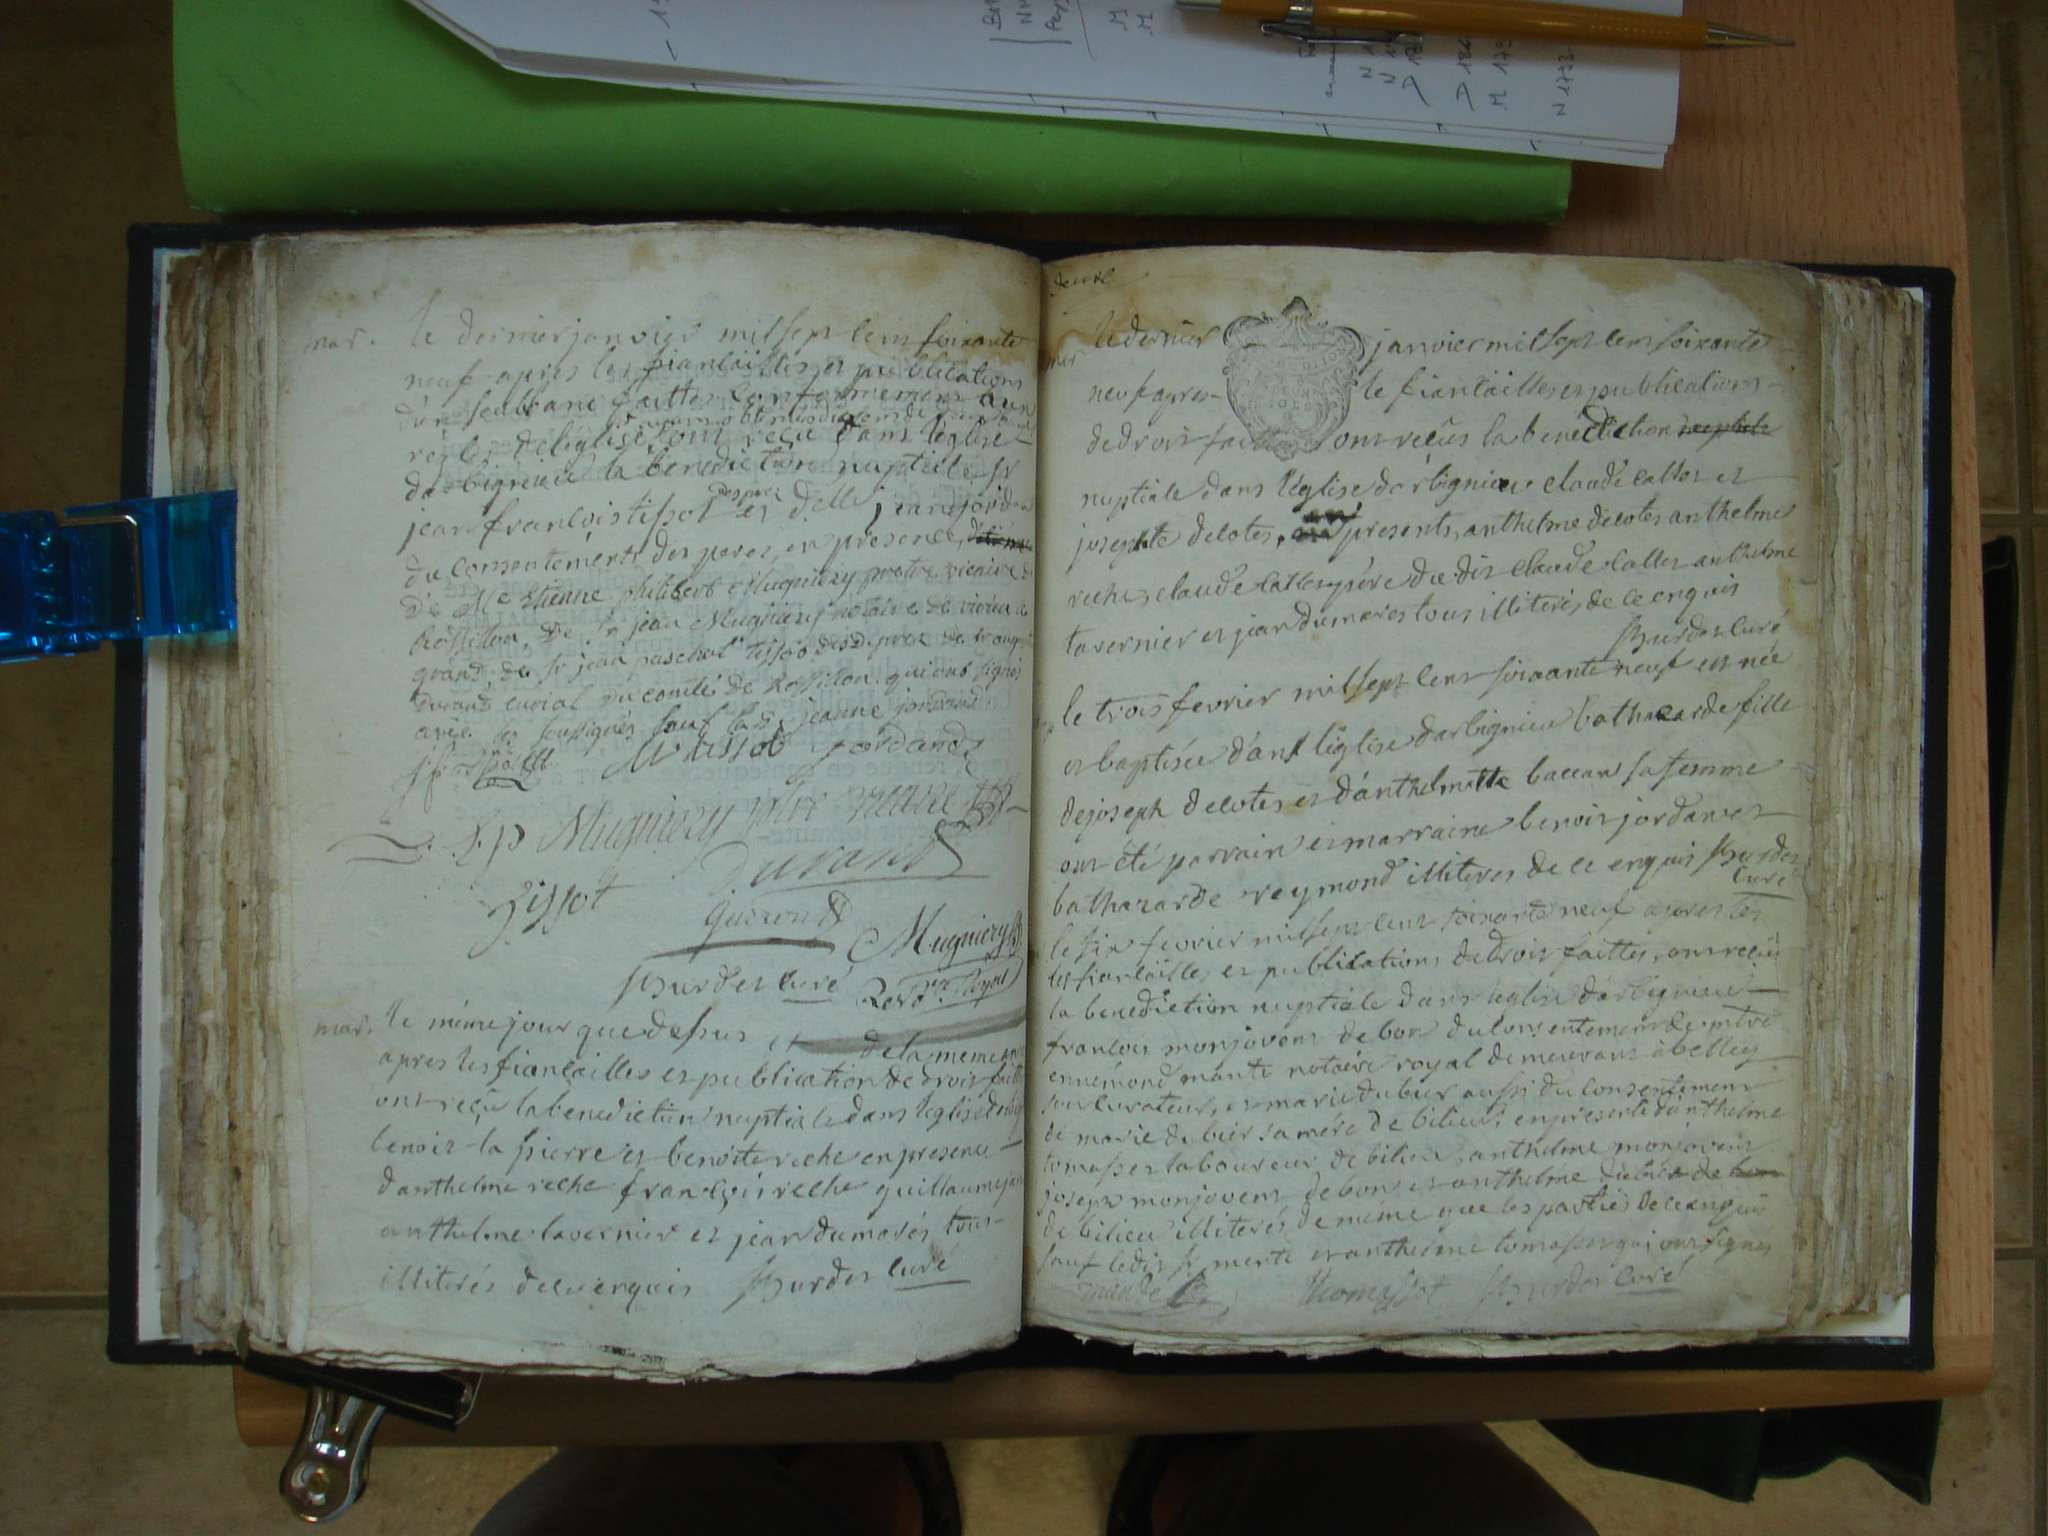 mar. le dernier janvier mil sept cent soixante
neuf apres les fiancailles et publications
d'un seul banc faittes conformement aux
régles de l'eglise ont reçu dans l'eglise
d'arbignieu la bénédiction nuptiale sr
jean francois tissot desprez et delle jeanne jordan
du consentement des peres, en presence
de Me Etienne philibert Mugniery pretre vicaire de
Rossillon, de sr jean Mugniery notaire de virieu le
grand, de sr jean paschal tissot des prez de
Durand curial du comté de Rossillon qui ont signés
avec les soussignés sauf lad. jeanne jordand
M tissot jordand
E p Mugniery ptre vicaire
Durand
Tissot
Mugniery
Burdet curé
mar. le même jour que dessus et de la meme
apres les fiancailles et publication de droit faittes
ont reçu la benediction nuptiale dans l'eglise
benoit la pierre et benoite reche en presence
d'anthelme reche françois reche guillaume
anthelme tavernier et jean dumarés tous
illiterés de ce enquis Burdet curé
deuxe
mar le dernier janvier mil sept cent soixante
neuf apres le fiancailles et publications
de droit faittes ont reçus la benediction
nuptiale dans l'église d'arbignieu claude callet et
josephte decotes, presents, anthelme decotes anthelme
reche, claude callet père du dit claude callet anthelme
tavernier et jean dumares tous illiterés de ce enquis
Burdet curé
le trois fevrier mil sept cent soixante neuf est née
et baptisée dans l'église d'arbignieu bathazarde fille
de joseph decotes et d'anthelmette baccan sa femme
ont été parrain et marraine benoit jordan et
bathazarde reymond illiteres de ce enquis Burdet
curé
le six fevrier mil sept cent soixante neuf apres les
les fiancailles et publications de droit faittes, ont reçus
la benediction nuptiale dans l'eglise d'arbignieu
francois monjovent de bon du consentement de mtre
ennemond mante notaire royal demeurant à belley
son curateur, et marie dubier aussi du consentement
de marie dubier sa mére de bilieu, en presence d'anthelme
tomasset laboureur de bilieu, anthelme monjovent
joseph monjovent de bon et anthelme dubier
de bilieu illiterés de même que les parties de ce enquis
sauf ledit sr mente et anthelme tomasset qui ont signés
Thomasset Burdet curé